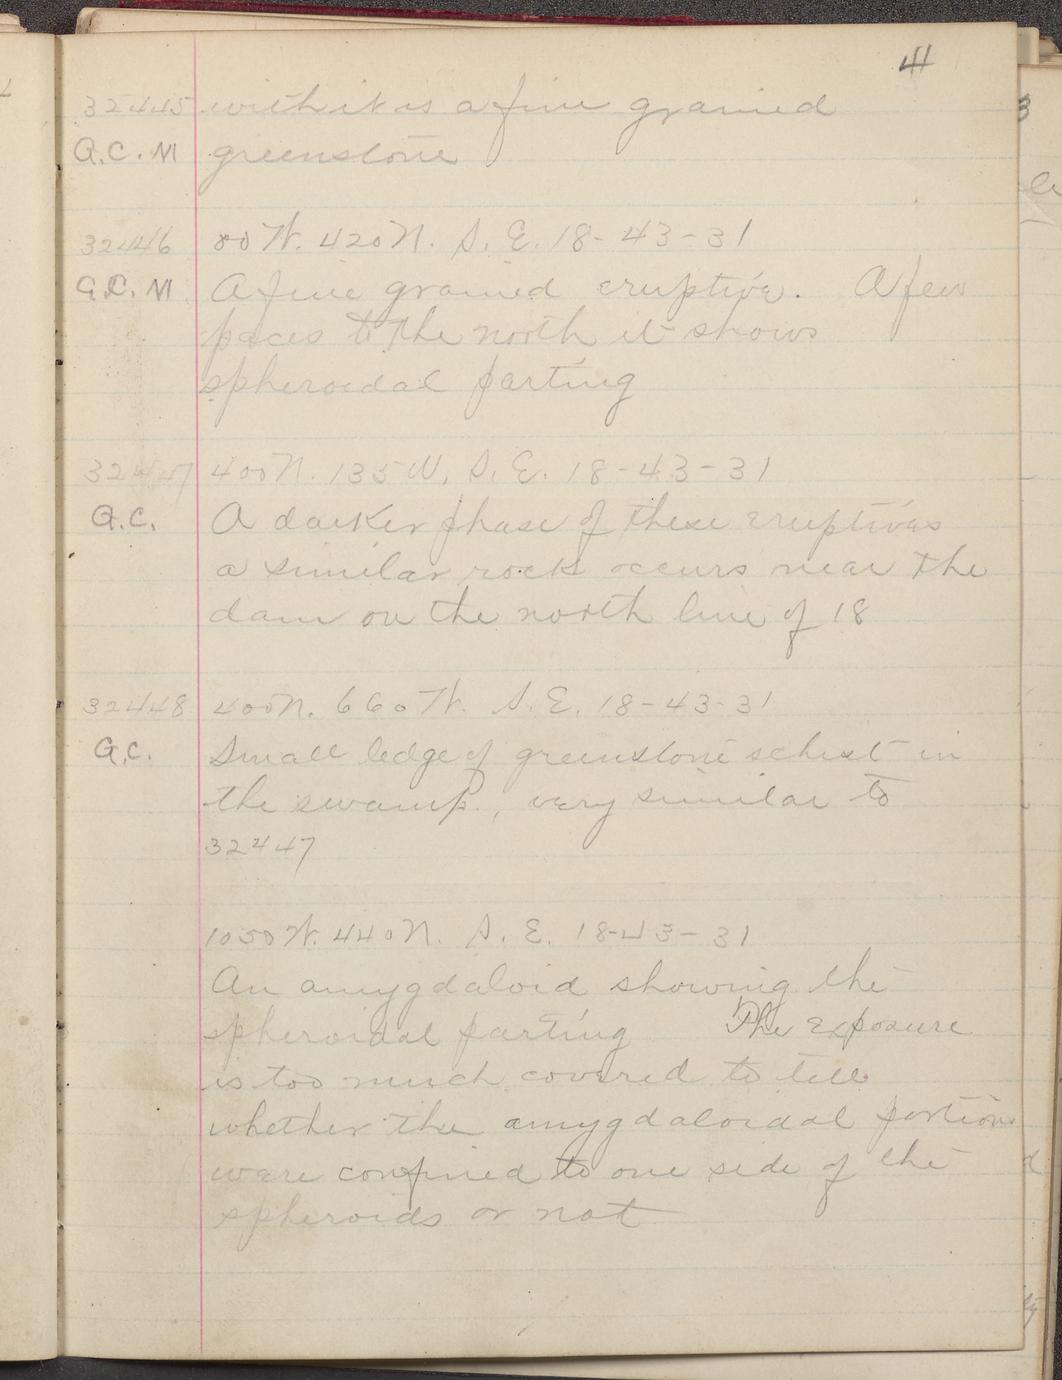 41
32445 with it is a fine grained
G.C. M greenstone
32446 80 W. 420 N. S. E. 18-43-31
G.C. M A fine grained eruptive. A few
paces to the north it shows
spheroidal parting
32447 400 N. 135 W. S. E. 18-43-31
G.C. A darker phase of these eruptives
a similar rock occurs near the
dam on the north line of 18
32448 400 N. 660 W. S. E. 18-43-31
G.C. Small ledge of greenstone schist in
the swamp, very similar to
32447
1050 W. 440 N. S. E. 18-43-31
An amygdaloid showing the
spheroidal parting The exposure
is too much covered to tell
whether the amygdaloidal portions
were confined to one side of the
spheroids or not